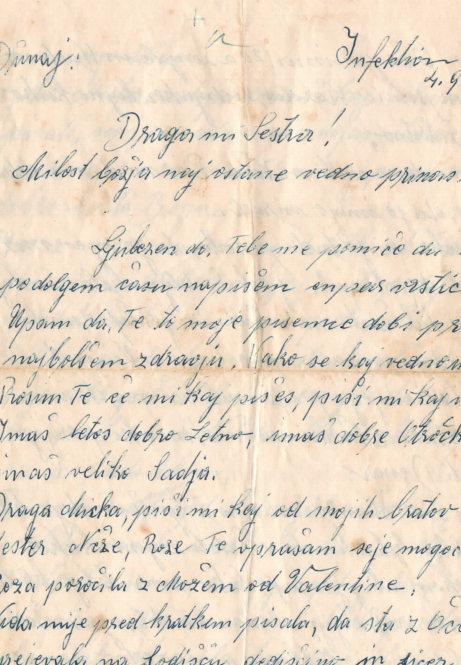 Dunaj!
Infektion
4. 9
Draga mi Sestra!
Milost božja naj ostane vedno pri nas
Ljubezen do, Tebe me pomiče da
podolgem času napišem enpar vrstic
Upam da, Te to moje pisemce dobi pr
najbolšem zdravju. Kako se kaj vedno
Prosim Te če mi kaj pišeš, piši mi kaj
Imaš letos dobro Letno, imaš dobre Otročk
imaš veliko Sadja.
Draga Micka, piši mi kaj od mojih bratov
Sester Neže, Roze Te vprašam se je mogoč
Roza poročila z Možem od Valentine.
mi je pred kratkim pisala, da sta z
prejevala na